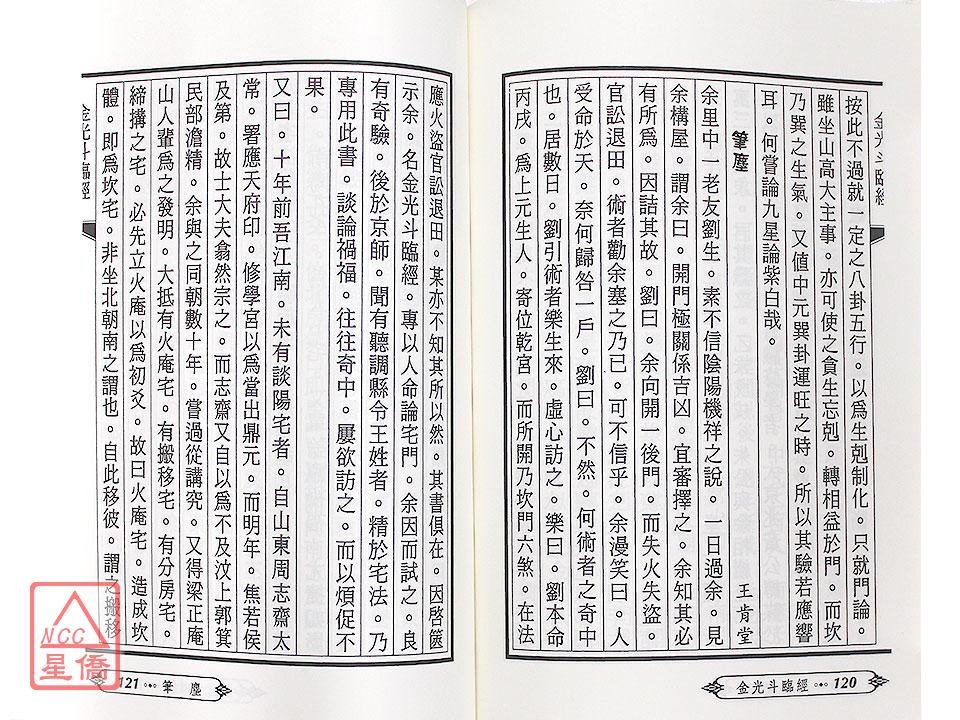 金光斗臨經
按此不過就一定之八卦五行。以爲生剋制化。只就門論。
雖坐山高大主事。亦可使之貪生忘剋。轉相益於門。而坎
乃巽之生氣。又值中元巽卦運旺之時。所以其驗若應響
耳。何嘗論九星論紫白哉。
筆塵
王肯堂
余里中一老友劉生。素不信陰陽機祥之說。一日過余。見
余構屋。謂余曰。開門極關係吉凶。宜審擇之。余知其必
有所爲。因詰其故。劉曰。余向開一後門。而失火失盜。
官訟退田。術者勸余塞之乃已。可不信乎。余漫笑曰。人
受命於天。奈何歸咎一戶。劉曰。不然。何術者之奇中
也。居數日。劉引術者樂生來。虛心訪之。樂曰。劉本命
丙戌。爲上元生人。寄位乾宮。而所開乃坎門六煞。在法
金光斗臨經 120
應火盜官訟退田。某亦不知其所以然。其書俱在。因啓篋
示余。名金光斗臨經。專以人命論宅門。余因而試之。良
有奇驗。後於京師。聞有聽調縣令王姓者。精於宅法。乃
專用此書。談論禍福。往往奇中。屢欲訪之。而以煩促不
果。
又曰。十年前吾江南。未有談陽宅者。自山東周志齋太
常。署應天府印。修學宮以爲當出鼎元。而明年。焦若侯
及第。故士大夫翕然宗之。而志齋又自以爲不及汶上郭箕
民部澹精。余與之同朝數十年。嘗過從講究。又得梁正庵
山人輩爲之發明。大抵有火庵宅。有搬移宅。有分房宅。
締搆之宅。必先立火庵以爲初爻。故曰火庵宅。造成坎
體。即爲坎宅。非坐北朝南之謂也。自此移彼。謂之搬移
金光斗臨經
121 筆塵
NCC
星僑